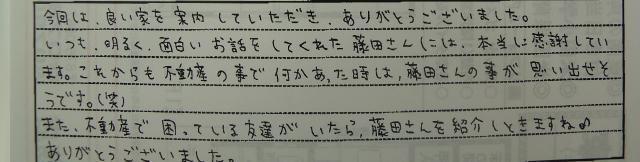 今回は、良い家を案内していただき、ありがとうございました。
いつも、明るく、面白いお話をしてくれた藤田さんには、本当に感謝してい
ます。これからも不動産の事で何かあった時は、藤田さんの事が思い出せそ
うです。(笑)
また、不動産で困っている友達がいたら、藤田さんを紹介しときますね♪
ありがとうございました。